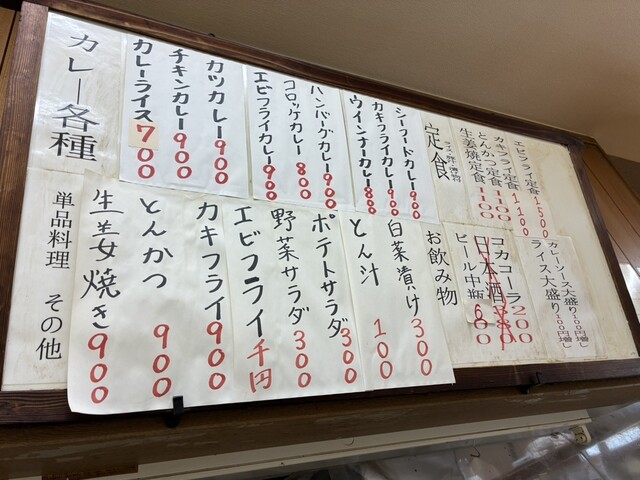 カレー各種
カレーライス 700
チキンカレー 900
カツカレー 900
エビフライカレー 900
コロッケカレー 800
ハンバーグカレー 900
ウインナーカレー 800
カキフライカレー 900
シーフードカレー 900
定食
生姜焼定食 1100
とんかつ定食 1100
カキフライ定食 1100
エビフライ定食 1500
単品料理 その他
生姜焼き 900
とんかつ 900
カキフライ 900
エビフライ 千円
野菜サラダ 300
ポテトサラダ 300
とん汁 100
白菜漬け 300
お飲み物
ビール中瓶 600
日本酒
コカコーラ 200
ライス大盛り100円増し
カレーソース大盛り200円増し